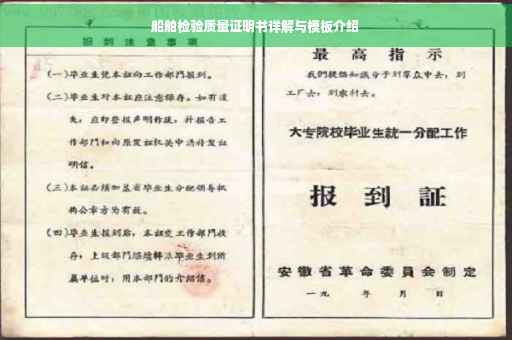 船舶检验质量证明书详解与模板介绍
报到注意事项
(一)毕业生凭本证向工作部門报到。
(二)毕业生对本证应注意保存。如有遗
失,应即登报声明作废,并报告工
作部門和向原发证机关申请补发证
明信。
(三)本证必须加盖省毕业生分配领导机
构公章方为有效。
(四)毕业生报到后,本证交工作部門收
存;上级部門继续转派毕业生到所
属单位时,用本部門的介绍信。
最高指示
我们提倡知识分子到群众中去,到
工厂去,到农村去。
大专院校毕业生統一分配工作
报到証
安徽省革命委員会制定
一九 年 月 日